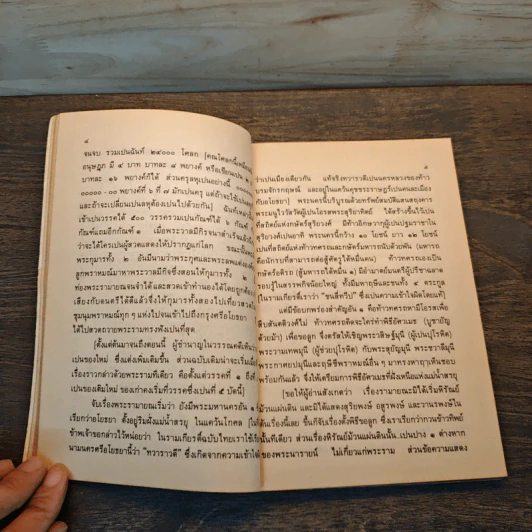 ๔
จนจบ รวมเปนฉันท์ ๒๔๐๐๐ โศลก [คณโศลกนี้เหมือน
อนุษฏภ มี ๔ บาท บาทละ ๘ พยางค์ หรือเขียนเปน ๒
บาทละ ๑๖ พยางค์ก็ได้ ส่วนครุลหุเปนอย่างนี้
พยางค์ที่ ๖ ที่ ๗ มักเปนครุ แต่ถ้าจะใช้
และถ้าจะเปลี่ยนเปนลหุต้องเปนไปด้วยกัน] ฉันท์เหล่านี้
เข้าเปนวรรคได้ ๕๐๐ วรรครวมเปนกัณฑ์ได้ ๖ กัณฑ์
กัณฑ์แถมอีกกัณฑ์ ๑ เมื่อพระวาลมิกิรจนาสำเร็จแล้ว
ว่าจะได้ใครเปนผู้สวดแสดงให้ปรากฏแก่โลก
พระกุมารทั้ง ๒ อันมีนามว่าพระกุศและพระลพแต่งองค์
ลูกพราหมณ์มาหาพระวาลมิกิจึ่งสอนให้กุมารทั้ง ๒
ท่องพระรามายณจนจำได้และสวดเข้าทำนองได้โดยถูกต้อง
เสียงกับดนตรีได้ดีแล้วจึ่งให้กุมารทั้งสองไปเที่ยวสวด
ชุมนุมพราหมณ์ทุก ๆ แห่งไปจนเข้าไปถึงกรุงศรีอโยธยา
ได้ไปสวดถวายพระรามทรงฟังเปนที่สุด
[ตั้งแต่ต้นมาจนถึงตอนนี้ ผู้ชำนาญในวรรณคดีเห็น
เปนของใหม่ ซึ่งแต่งเพิ่มเติมขึ้น ส่วนฉบับเดิมน่าจะเริ่ม
เรื่องราวกล่าวด้วยพระรามทีเดียว คือตั้งแต่วรรคที่ ๑ ถึงที่
เปนของเติมใหม่ ของเก่าคงเริ่มที่วรรคซึ่งเปนที่ ๕ บัดนี้]
จับเรื่องพระรามายณเริ่มว่า ยังมีพระมหานครอัน ๑
เรียกว่าอโยธยา ตั้งอยู่ริมฝั่งแม่น้ำสรยุ ในแคว้นโกศล [ใน
ข้าพเจ้าขอกล่าวไว้หน่อยว่า ในรามเกียรติ์ฉบับไทยเราใช้เรียก
นามนครศรีอโยธยานี้ว่า “ทวาราวดี” ซึ่งเกิดจากความเข้าใจ
๕
ว่าเปนเมืองเดียวกัน แท้จริงทวาราวดีเปนนครหลวงของท้าว
บรมจักรกฤษณ์ และอยู่ในแคว้นคุชชระราษฎร์เปนคนละเมือง
กับอโยธยา] พระนครนี้บริบูรณ์ด้วยทรัพย์สมบัติแสนดุจวาว
พระมนูไววัสวัตผู้เปนโอรสพระสุริยาทิตย์ ได้สร้างขึ้นไว้เปน
ที่สถิตย์แห่งกษัตร์สุริยวงศ์ มีท้าวอิกษวากุผู้เปนปฐมราชาใน
สุริยวงศ์เปนอาทิ พระนครนี้กว้าง ๑๐ โยชน์ ยาว ๑๒ โยชน์
เปนที่สถิตย์แห่งท้าวทศรถและกษัตร์มหารถนับด้วยพัน (มหารถ
คือนักรบที่สามารถต่อสู้ศัตรูได้หมื่นคน) ท้าวทศรถเองเปน
กษัตร์อติรถ (สู้มหารถได้หมื่น ๑) มีอำมาตย์มนตรีผู้ปรีชาฉลาด
รอบรู้ในสรรพกิจน้อยใหญ่ ทั้งมีมหาฤษีและชนทั้ง ๔ ตระกูล
[ในรามเกียร์ติ์เราว่า “ชนสี่ทวีป” ซึ่งเปนความเข้าใจผิดโดยแท้]
แต่มีข้อบกพร่องสำคัญอัน ๑ คือท้าวทศรถหามีโอรสเพื่อ
สืบสันตติวงศ์ไม่ ท้าวทศรถคิดจะใคร่ทำพิธีอัศวเมธ (บูชายัญ
ด้วยม้า) เพื่อขอลูก จึ่งตรัสให้เชิญพระวสิษฐ์มุนี (ผู้เปนปุโรหิต)
พระวามเทพมุนี (ผู้ช่วยปุโรหิต) กับพระสุยัญมุนี พระชวาลีมุนี
พระกาศยปมุนีและฤษีชีพราหมณ์อื่น ๆ มาทรงหารุเห็นชอบ
พร้อมกันแล้ว จึ่งให้เตรียมการพิธีอัศวเมธที่ฝั่งเหนือแห่งแม่น้ำสรยุ
[ขอให้ผู้อ่านสังเกตว่า เรื่องรามายณะมิได้เริ่มหิรัณย์
ม้วนแผ่นดิน และมิได้แสดงสุริยพงษ์ อสูรพงษ์ และวานรพงษ์ใน
ต้นเรื่องนี้เลย ขึ้นก็จับเรื่องตั้งพิธีขอลูก ซึ่งเราเรียกว่ากวนข้าวทิพย์
ทันทีเดียว ส่วนเรื่องหิรัณย์ม้วนแผ่นดินนั้น เปนปาง ๑ ต่างหาก
ของพระนารายน์ ไม่เกี่ยวแก่พระราม ส่วนข้อความแสดง